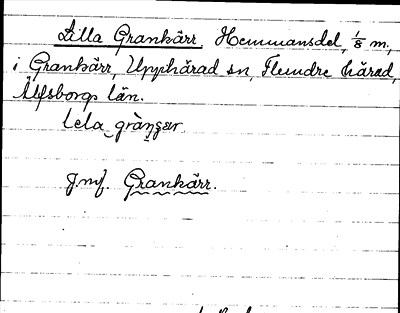 Lilla Grankärr, Hemmansdel, 1/8 m.,
i Grankärr, Upphärad sn, Flundre härad,
Älfsborgs län.
lela grängar
Jmf. Grankärr.